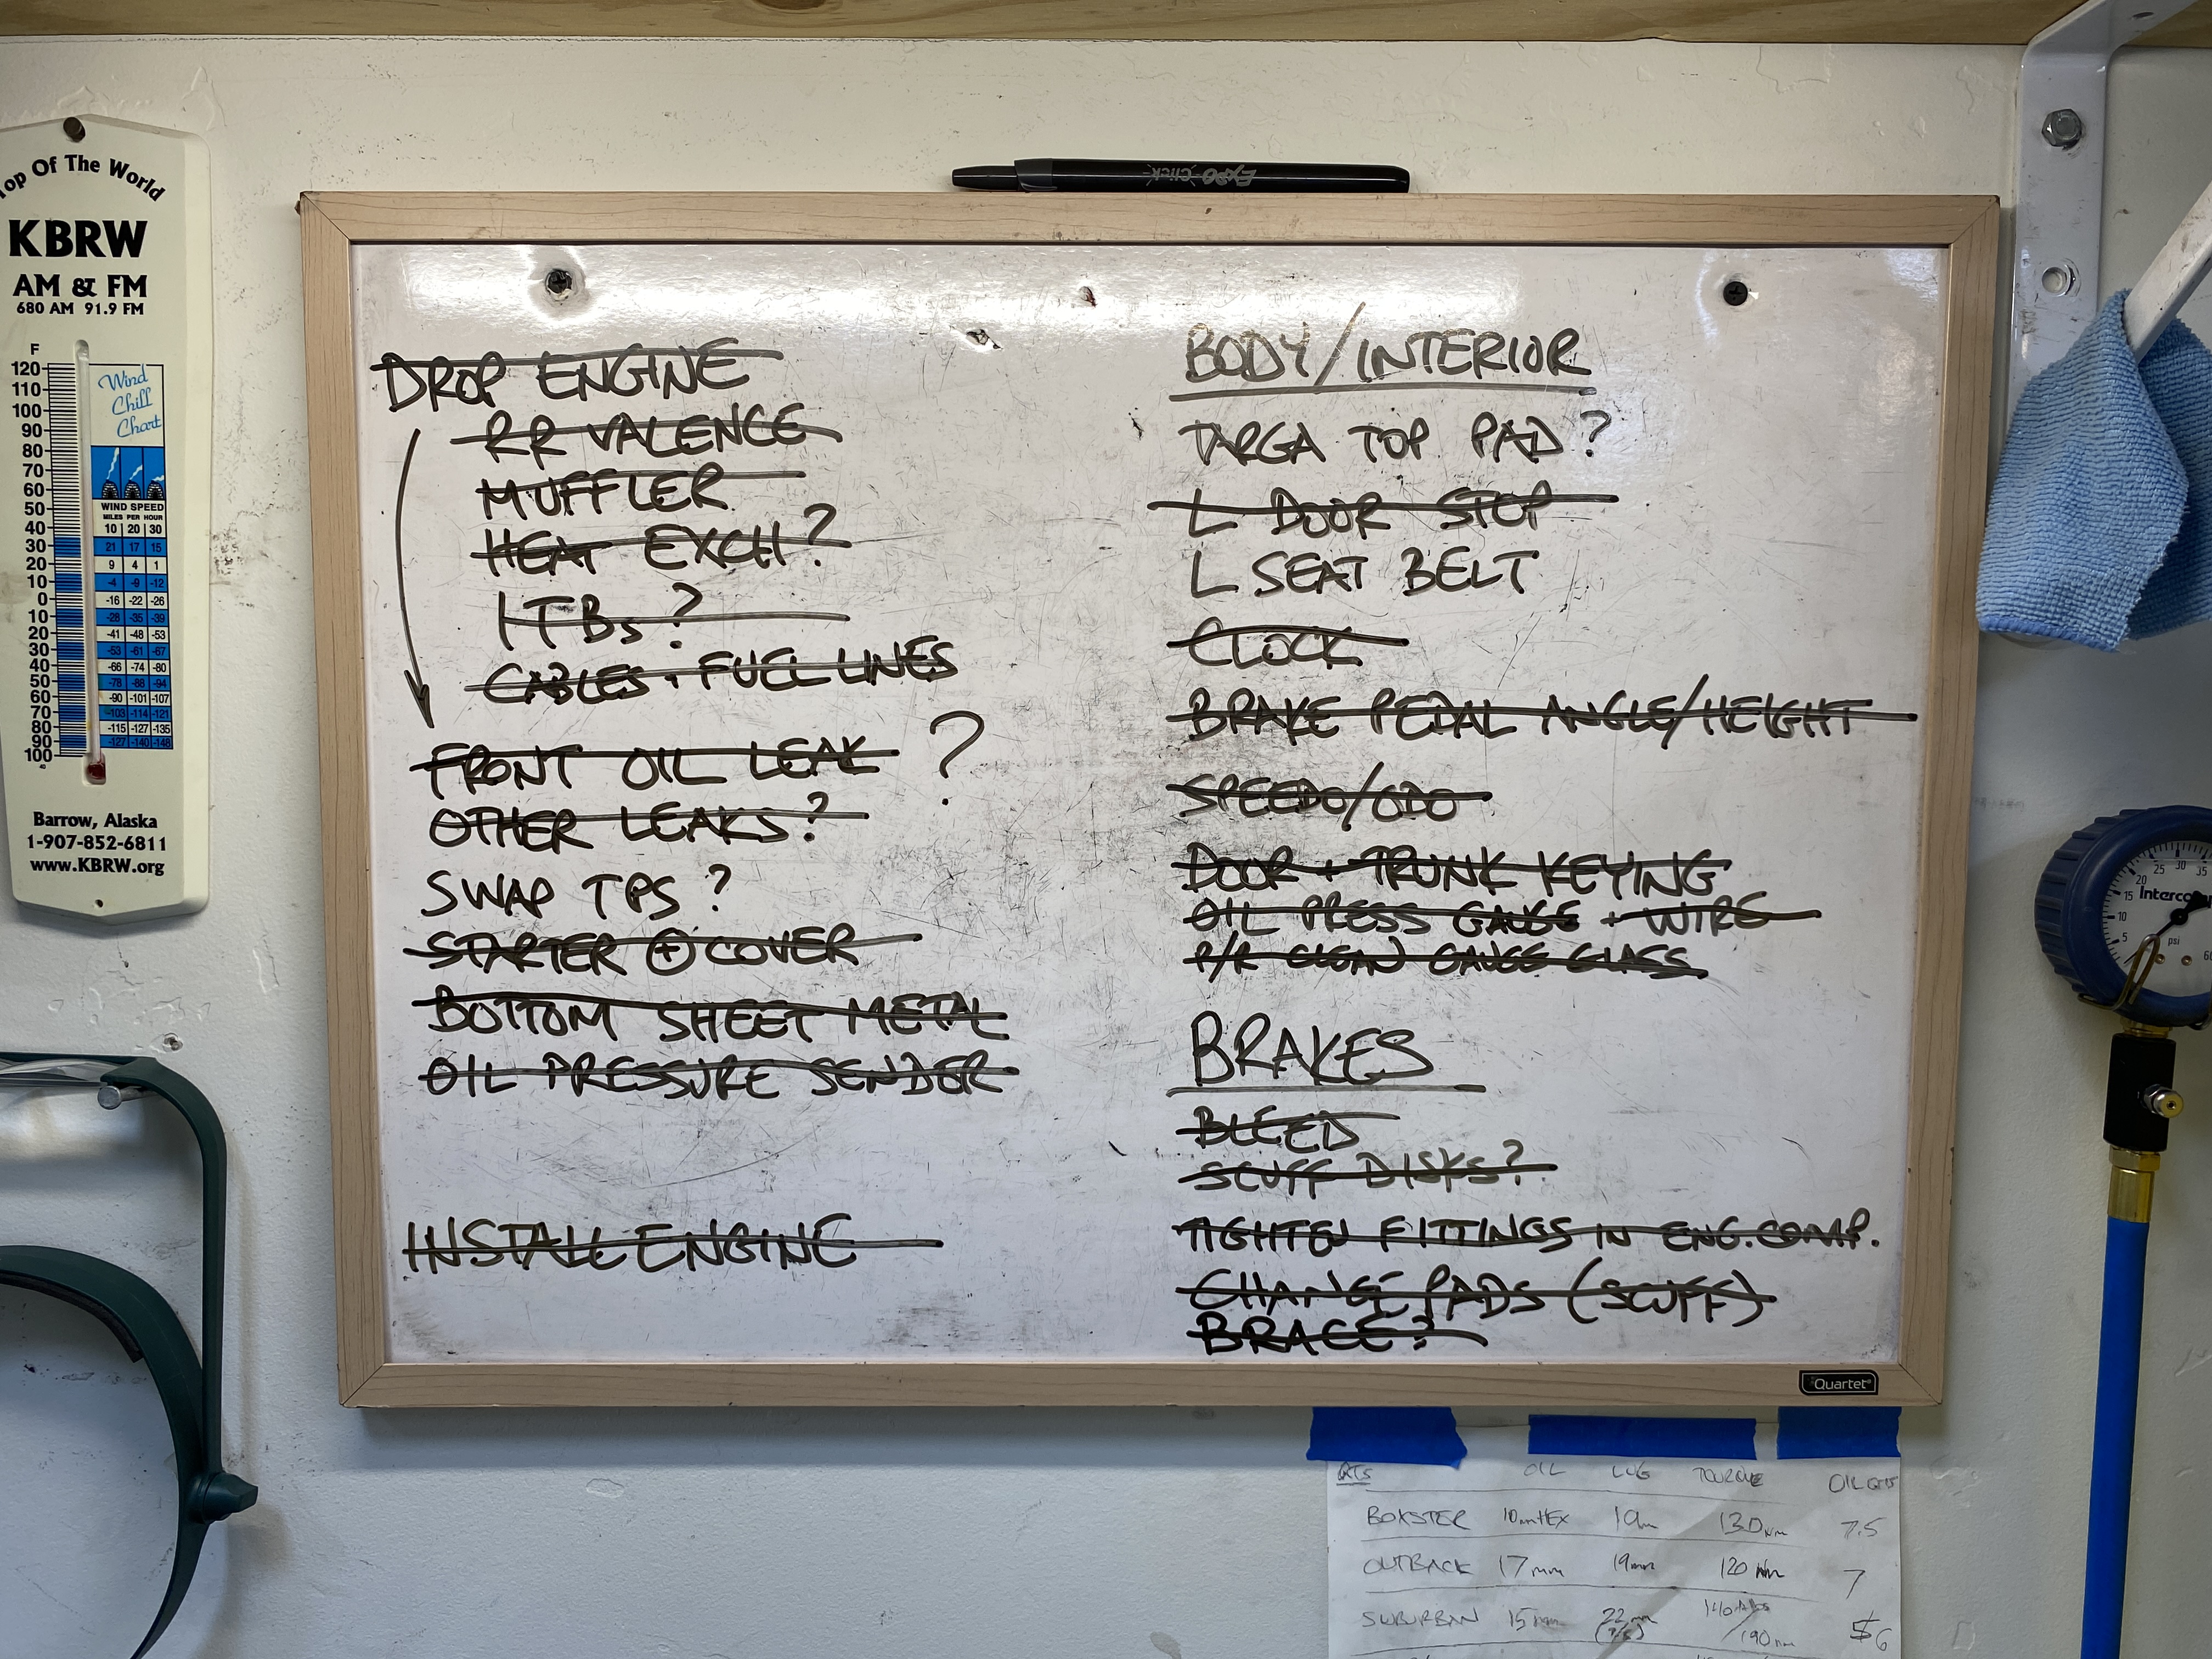 Top Of The World
KBRW
AM & FM
680 AM 91.9 FM
F
120
110
100
90
80
70
60
50
40
30
20
10
0
10
20
30
40
50
60
70
80
90
100
Wind
Chill
Chart
WIND SPEED
MILES PER HOUR
10 20 30
21 17 15
9 4 1
-4 -9 -12
-16 -22 -26
-28 -35 -39
-41 -48 -53
-53 -61 -67
-66 -74 -80
-78 -88 -94
-90 -101 -107
-103 -114 -121
-115 -127 -135
-127 -140 -148
Barrow, Alaska
1-907-852-6811
www.KBRW.org
Expo Click
DROP ENGINE
RR VALENCE
MUFFLER
HEAT EXCH?
ITBs?
CABLES + FUEL LINES
FRONT OIL LEAK ?
OTHER LEAKS?
SWAP TPS ?
STARTER + COVER
BOTTOM SHEET METAL
OIL PRESSURE SENDER
INSTALL ENGINE
BODY/INTERIOR
TARGA TOP PAD?
L DOOR STOP
L SEAT BELT
CLOCK
BRAKE PEDAL ANGLE/HEIGHT
SPEEDO/ODO
DOOR + TRUNK KEYING
OIL PRESS GAUGE + WIRE
P/R CLEAN GAUGE GLASS
BRAKES
BLEED
SCUFF DISKS?
TIGHTEN FITTINGS IN ENG. COMP.
CHANGE PADS (SCUFF)
BRACE?
Quartet
OIL LUG TORQUE OIL QTS
BOXSTER 10mm HEX 19m 130 Nm 7.5
OUTBACK 17mm 19mm 120 Nm 7
SUBURBAN 15mm 22mm 190 nm 6
5 10 15 20 25 30 35
psi